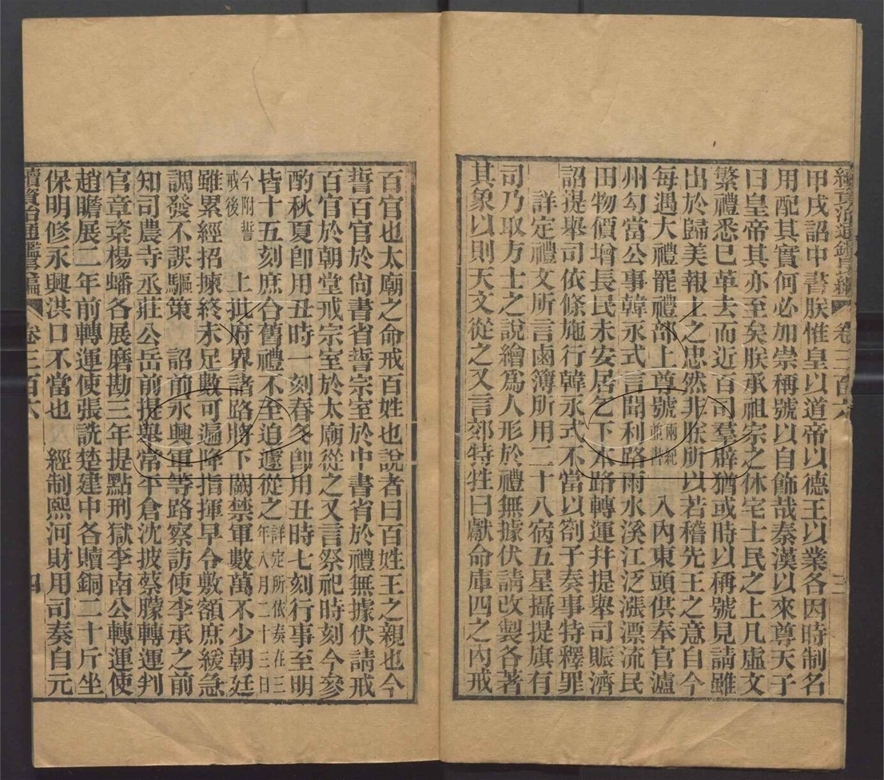 甲戌詔中書朕惟皇以道帝以德王以業各因時制名
用配其實何必加崇稱號以自飾哉秦漢以來尊天子
曰皇帝其亦至矣朕承祖宗之休宅士民之上凡虛文
繁禮悉已革去而近百司羣辟猶或時以稱號見請雖
出於歸美報上之忠然非朕所以若稽先王之意自今
每遇大禮罷禮部上尊號兩紀並書 入內東頭供奉官瀘
州勾當公事韓永式言聞利路雨水溪江泛漲漂流民
田物價增長民未安居乞下本路轉運幷提舉司賑濟
詔提舉司依條施行韓永式不當以劄子奏事特釋罪
詳定禮文所言鹵簿所用二十八宿五星攝提旗有
司乃取方士之說繪爲人形於禮無據伏請改製各著
其象以則天文從之又言郊特牲曰獻命庫四之內戒
續資治通鑑長編 卷三百六 三
百官也太廟之命戒百姓也說者曰百姓王之親也今
誓百官於尙書省誓宗室於中書省於禮無據伏請戒
百官於朝堂戒宗室於太廟從之又言祭祀時刻今參
酌秋夏卽用丑時一刻春冬卽用丑時七刻行事至明
皆十五刻庶合舊禮不至迫遽從之詳定所依奏在三年八月二十三日
今附誓戒後 上批府界諸路將下闕禁軍數萬不少朝廷
雖累經招揀終未足數可遍降指揮早令敷額庶緩急
調發不誤驅策 詔前永興軍等路察訪使李承之前
知司農寺丞莊公岳前提舉常平倉沈披蔡朦轉運判
官章楶楊蟠各展磨勘三年提點刑獄李南公轉運使
趙瞻展二年前轉運使張詵楚建中各贖銅二十斤坐
保明修永興洪口不當也 經制熙河財用司奏自元
續資治通鑑長編 卷三百六 四